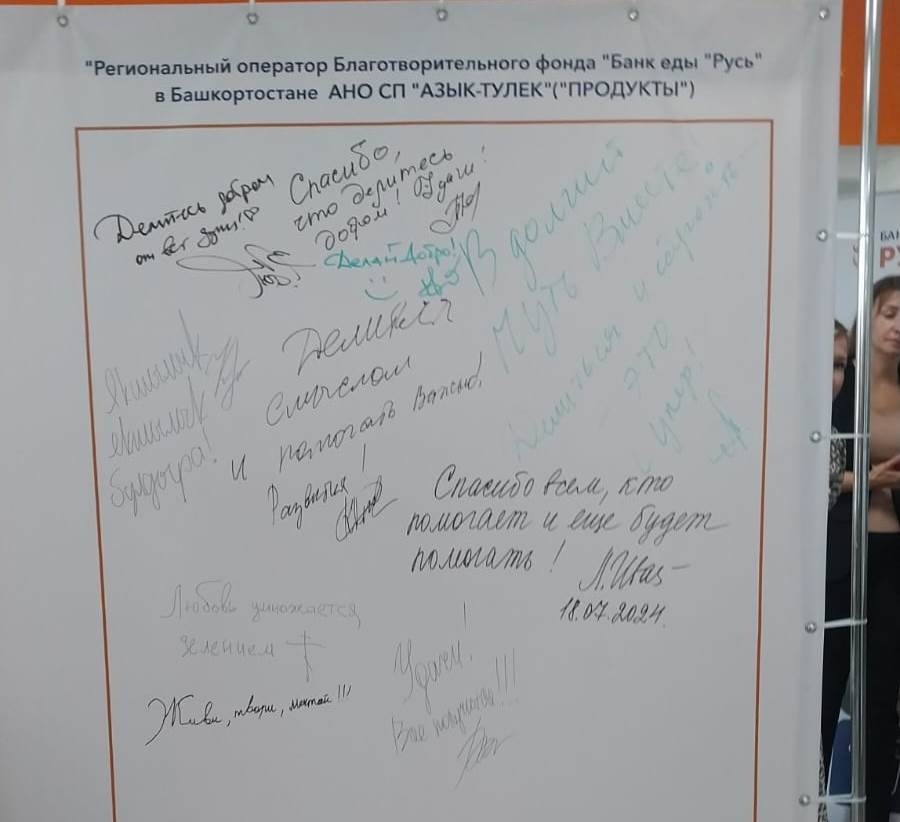 "Региональный оператор Благотворительного фонда "Банк еды "Русь"
в Башкортостане АНО СП "АЗЫК-ТУЛЕК"("ПРОДУКТЫ")
Делитесь добром
от всей души!
Спасибо,
что делитесь
добром! Удачи!
Делай Добро!
В долгий
Путь Вместе!
Делиться
это
Делимся
смыслом
и помогать
Развития!
Яхшылык
булдыра!
Спасибо всем, кто
помогает и еще будет
помогать!
18.07.2024
Любовь умножается
Живи, твори, мечтай!!!
Удачи!
Вас
БАН
РУ